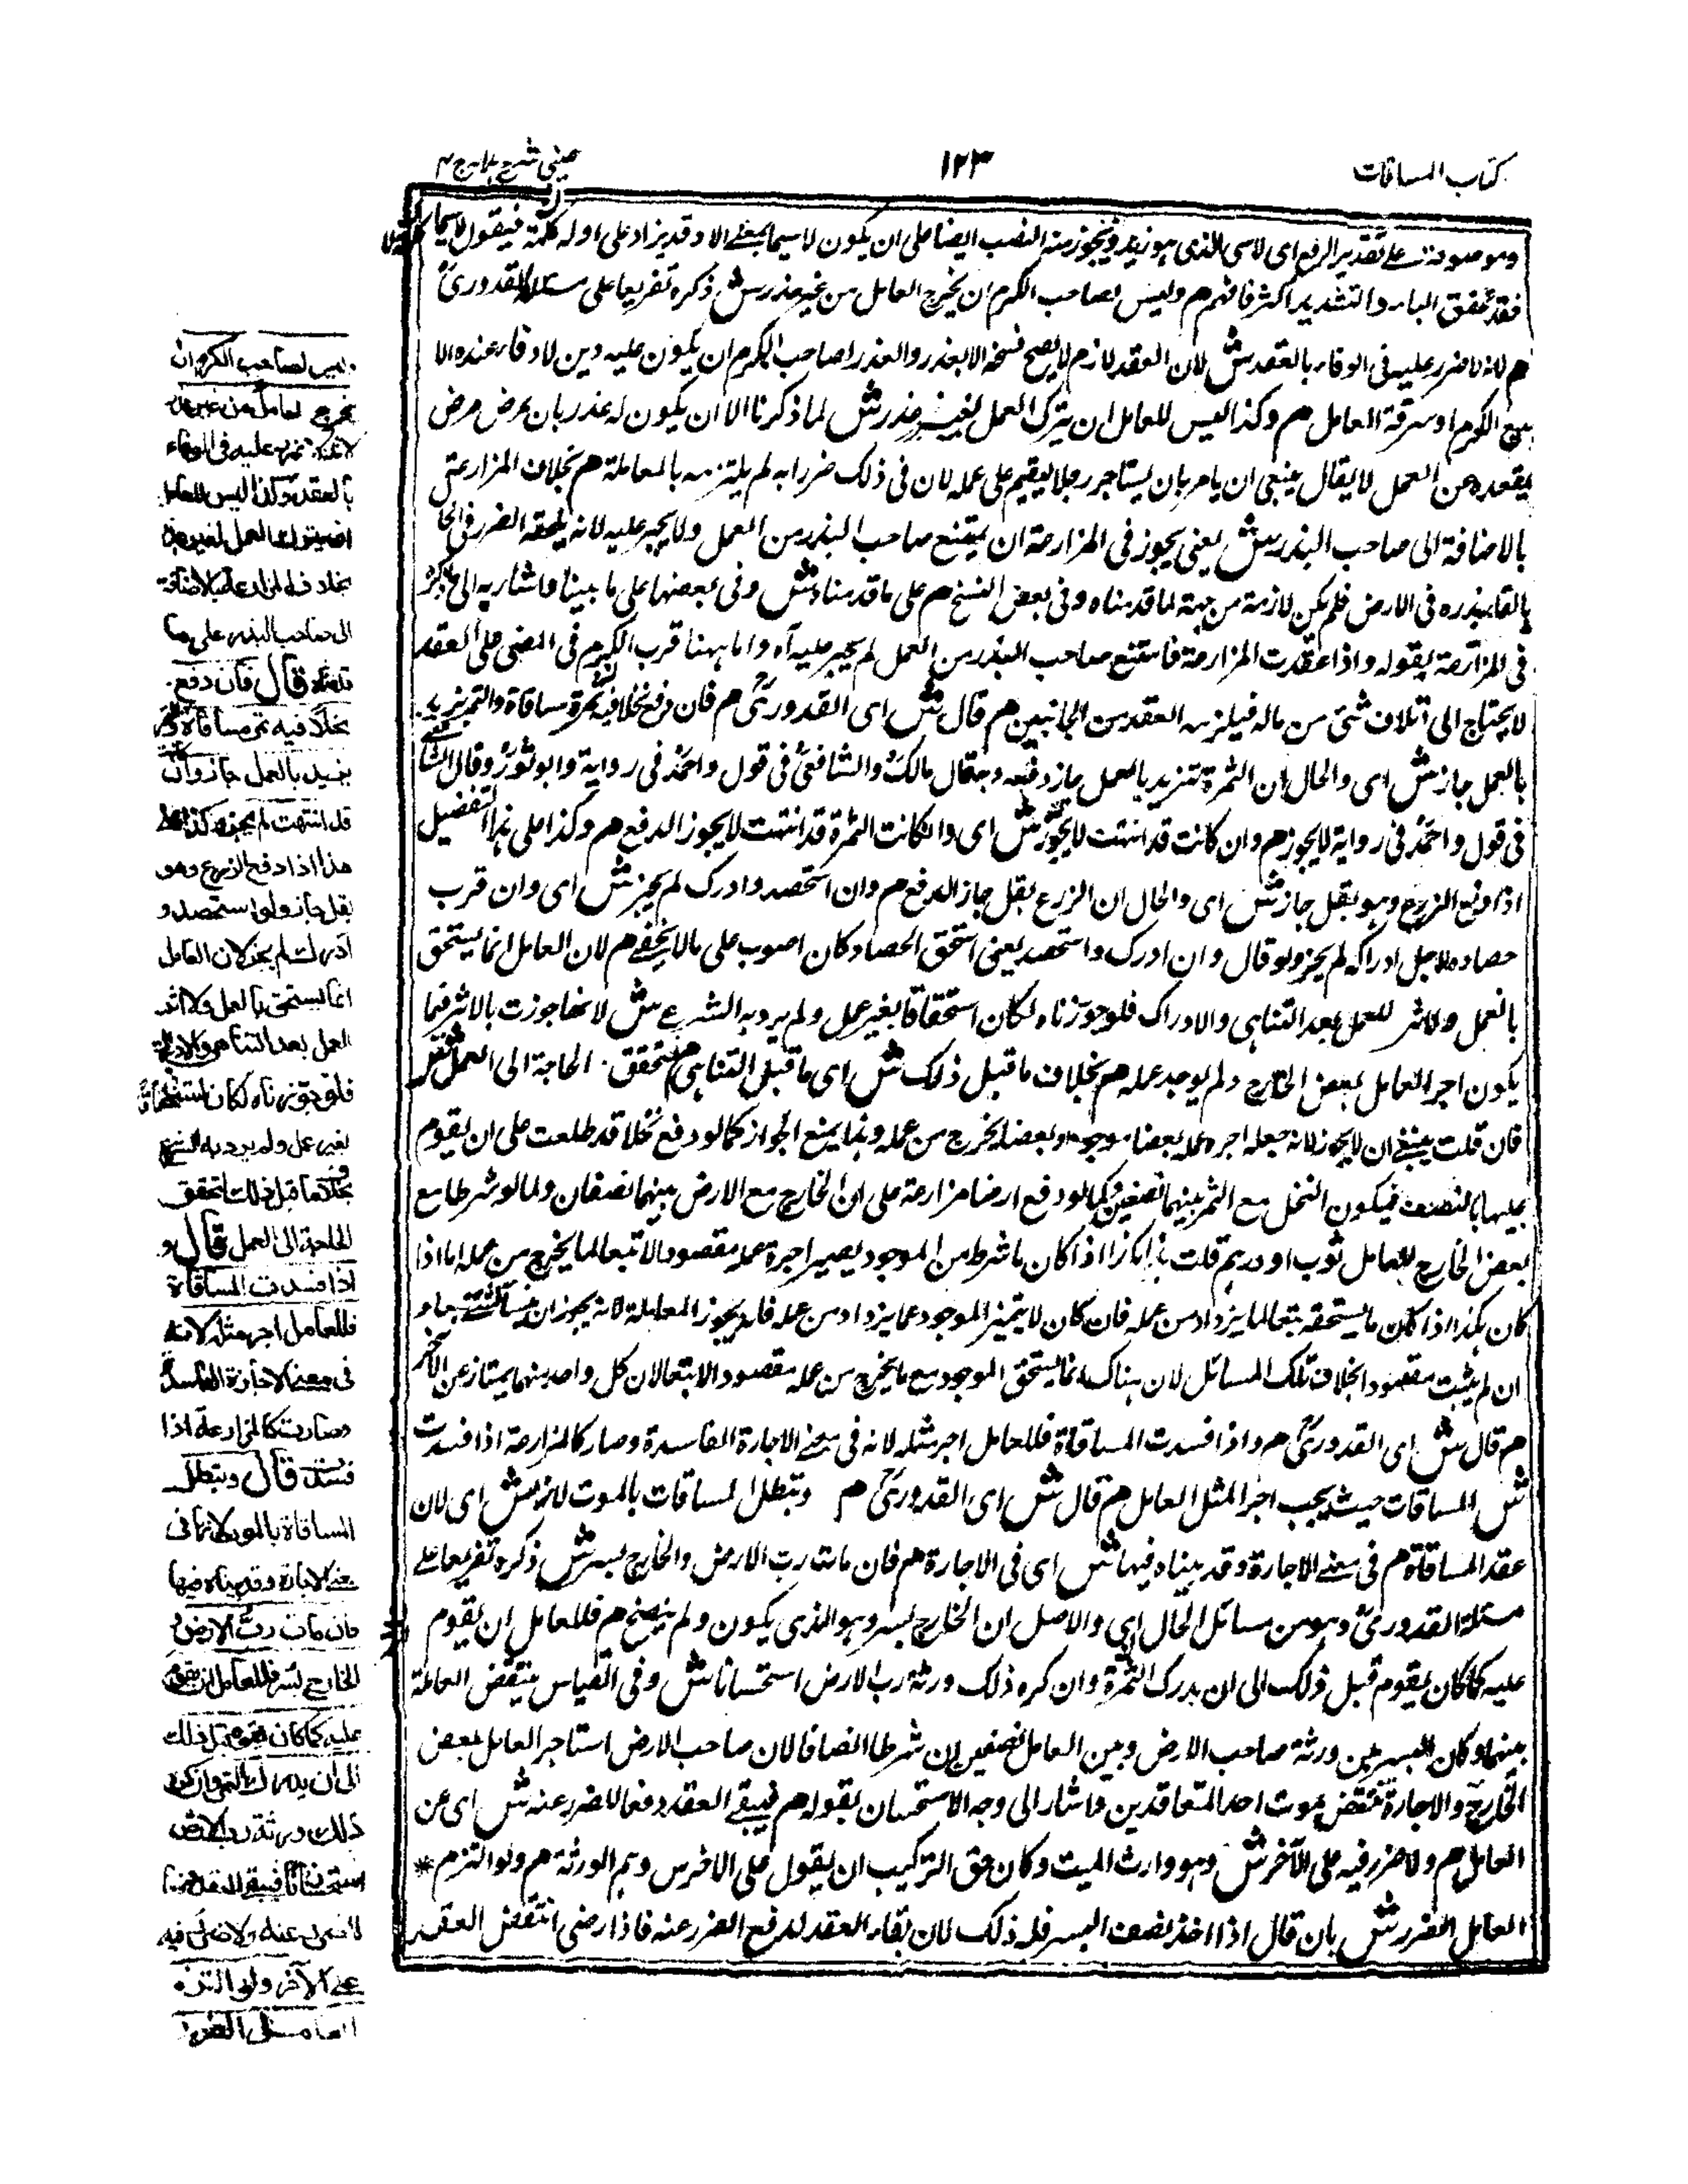 كتاب المساقات
١٢٣
عینی شرح ہدایہ ج ۴
وموصوفة على تقدير الرفع اى لاسى الذى ہو زيد ويجوز منه النصب ايضا على ان يكون لاسيما بمعنے الا وقد يزاد على اوله كلمة فيقول لاسيما
فقد تخفف الياء والتشديد اكثر فافہم م وليس لصاحب الكرم ان يخرج العامل من غير عذر ش ذكره تفريعا على مسئلة القدورىؒ
م لانہ لا ضرر عليه فى الوفاء بالعقد ش لان العقد لازم لا يصح فسخه الا بعذر والعذر لصاحب الكرم ان يكون عليه دين لا وفاء عنده الا
ببيع الكرم او سرقة العامل م وكذا ليس للعامل ان يترك العمل بغير عذر ش لما ذكرنا الا ان يكون له عذر بان يمرض مرض
يقعده عن العمل لا يقال ينبغى ان يامر بان يستاجر رجلا يقيم على عمله لان فى ذلك ضررا به لم يلتزمه بالمعاملة م بخلاف المزارعة
بالاضافة الى صاحب البذر ش يعنى يجوز فى المزارعة ان يمتنع صاحب البذر من العمل ولا يجبر عليه لانه يلحقه الضرر فى الحال
بالقاء بذره فى الارض فلم يكن لازمة من جهة لما قدمناه وفى بعض النسخ م على ما قدمناه ش وفى بعضها على ما بينا واشار به الى ما ذكر
فى المزارعة بقوله واذا عقدت المزارعة فامتنع صاحب البذر من العمل لم يجبر عليه آه واما ہہنا قرب الكرم فى المضى على العقد
لا يحتاج الى اتلاف شئ من ماله فيلزمه العقد من الجانبين م قال ش اى القدورىؒ م فان دفع نخلا فيه ثمرة مساقاة والثمر يزيد
بالعمل جاز ش اى والحال ان الثمرة تزيد بالعمل جاز دفعه وبه قال مالكؒ والشافعىؒ فى قول واحمدؒ فى رواية وابو ثورؒ وقال الشافعىؒ
فى قول واحمدؒ فى رواية لا يجوز م وان كانت قد انتهت لا يجوز ش اى وان كانت الثمرة قد انتهت لا يجوز الدفع م وكذا على ہذا التفصيل
اذا دفع الزرع وہو بقل جاز ش اى والحال ان الزرع بقل جاز الدفع م وان استحصد وادرك لم يجز ش اى وان قرب
حصاده لاجل ادراكه لم يجز ولو قال وان ادرك واستحصد يعنى استحق الحصاد كان اصوب على مالا يخفے م لان العامل انما يستحق
بالعمل ولا اثر للعمل بعد التناہى والادراك فلو جوزناه لكان استحقاقا بغير عمل ولم يرد به الشرع ش لانها جوزت بالاثر فيما
يكون اجر العامل بعض الخارج ولم يوجد عمله م بخلاف ما قبل ذلك ش اى ما قبل التناہى م لتحقق الحاجة الى العمل ش
فان قلت ينبغے ان لا يجوز لانه جعله اجر عمله بعضا موجودا وبعضا يخرج من عمله وہذا يمنع الجواز كما لو دفع نخلا قد طلعت على ان يقوم
عليها بالنصف فيكون النخل مع الثمر بينهما نصفين وكما لو دفع ارضا مزارعة على ان الخارج مع الارض بينهما نصفان وكما لو شرطا مع
بعض الخارج للعامل ثوب او درہم قلت ہذا ہكذا اذا كان ما شرط من الموجود يصير اجرة عمله مقصودا لا تبعا لما يخرج من عمله اما اذا
كان ہكذا اذا كان ما يستحقه تبعا لما يزداد من عمله فان كان لا يتميز الموجود عما يزداد من عمله فانه يجوز المعاملة لانه يجوز ان
ان لم يثبت مقصودا بخلاف تلك المسائل لان ہناك انما يستحق الموجود مع ما يخرج من عمله مقصودا لا تبعا لان كل واحد منهما يمتاز عن الآخر
م قال ش اى القدورىؒ م واذا فسدت المساقاة فللعامل اجر مثله لانه فى معنے الاجارة الفاسدة وصار كالمزارعة اذا فسدت
ش المساقات حيث يجب اجر المثل للعامل م قال ش اى القدورىؒ م وتبطل المساقات بالموت لانها ش اى لان
عقد المساقاة م فى معنے الاجارة وقد بيناه فيها ش اى فى الاجارة م فان مات رب الارض والخارج بسر ش ذكره تفريعا على
مسئلة القدورىؒ وہو من مسائل الحال اى والاصل ان الخارج بسر وہو الذى يكون ولم ينضج م فللعامل ان يقوم
عليه كما كان يقوم قبل ذلك الى ان يدرك الثمرة وان كره ذلك ورثة رب الارض استحسانا ش وفى القياس ينتقض المعاملة
بينهما وكان البسر بين ورثة صاحب الارض وبين العامل نصفين ان شرطا انصافا لان صاحب الارض استاجر العامل ببعض
الخارج والاجارة تنتقض بموت احد المتعاقدين واشار الى وجه الاستحسان بقوله م فيبقے العقد دفعا للضرر عنه ش اى عن
العامل م ولا ضرر فيه على الآخر ش وہو وارث الميت وكان حق التركيب ان يقول على الآخرين وہم الورثة م ولو التزم *
العامل الضرر ش بان قال اذا اخذ نصف البسر فله ذلك لان بقاء العقد لدفع الضرر عنه فاذا رضى انتقض العقد
وليس لصاحب الكرم ان
يخرج العامل من غير عذر
لانه لا ضرر عليه فى الوفاء
بالعقد وكذا ليس للعامل
ان يترك العمل بغير عذر
بخلاف المزارعة بالاضافة
الى صاحب البذر على ما
قدمناه قال فان دفع
نخلا فيه ثمر مساقاة والثمر
يزيد بالعمل جاز وان كانت
قد انتهت لم يجز وكذا على
هذا اذا دفع الزرع وهو
بقل جاز ولو استحصد و
ادرك لم يجز لان العامل
انما يستحق بالعمل ولا اثر
العمل بعد التناهى والادراك
فلو جوزناه لكان استحقاقا
بغير عمل ولم يرد به الشرع
بخلاف ما قبل ذلك لتحقق
الحاجة الى العمل قال و
اذا فسدت المساقاة
فللعامل اجر مثله لانه
فى معنے الاجارة الفاسدة
وصارت كالمزارعة اذا
فسدت قال وتبطل
المساقاة بالموت لانها فى
معنے الاجارة وقد بيناه فيها
فان مات رب الارض و
الخارج بسر فللعامل ان يقوم
عليه كما كان يقوم قبل ذلك
الى ان يدرك الثمر وان كره
ذلك ورثة رب الارض
استحسانا فيبقى العقد دفعا
للضرر عنه ولا ضرر فيه
على الآخر ولو التزم
العامل الضرر